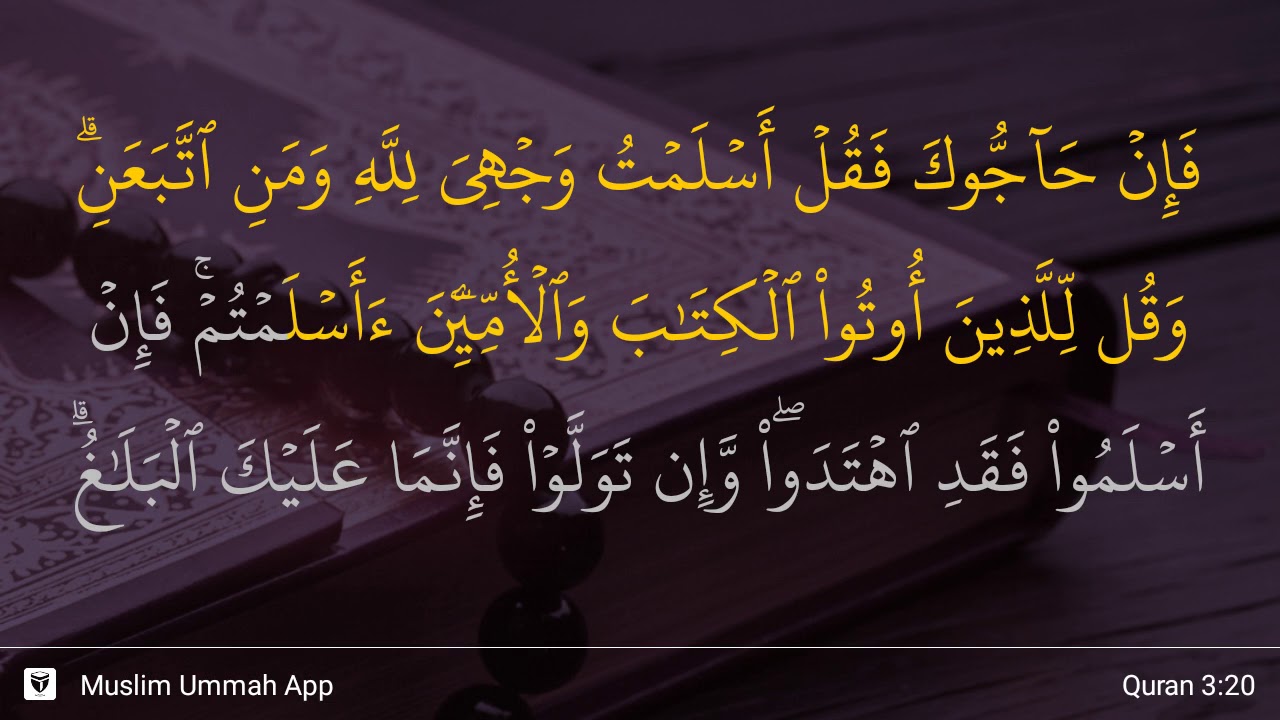 فَإِنْ حَآجُّوكَ فَقُلْ أَسْلَمْتُ وَجْهِىَ لِلَّهِ وَمَنِ ٱتَّبَعَنِ ۗ
وَقُل لِّلَّذِينَ أُوتُوا۟ ٱلْكِتَـٰبَ وَٱلْأُمِّيِّـۧنَ ءَأَسْلَمْتُمْ ۚ فَإِنْ
أَسْلَمُوا۟ فَقَدِ ٱهْتَدَوا۟ ۖ وَّإِن تَوَلَّوْا۟ فَإِنَّمَا عَلَيْكَ ٱلْبَلَـٰغُ ۗ
Muslim Ummah App
Quran 3:20